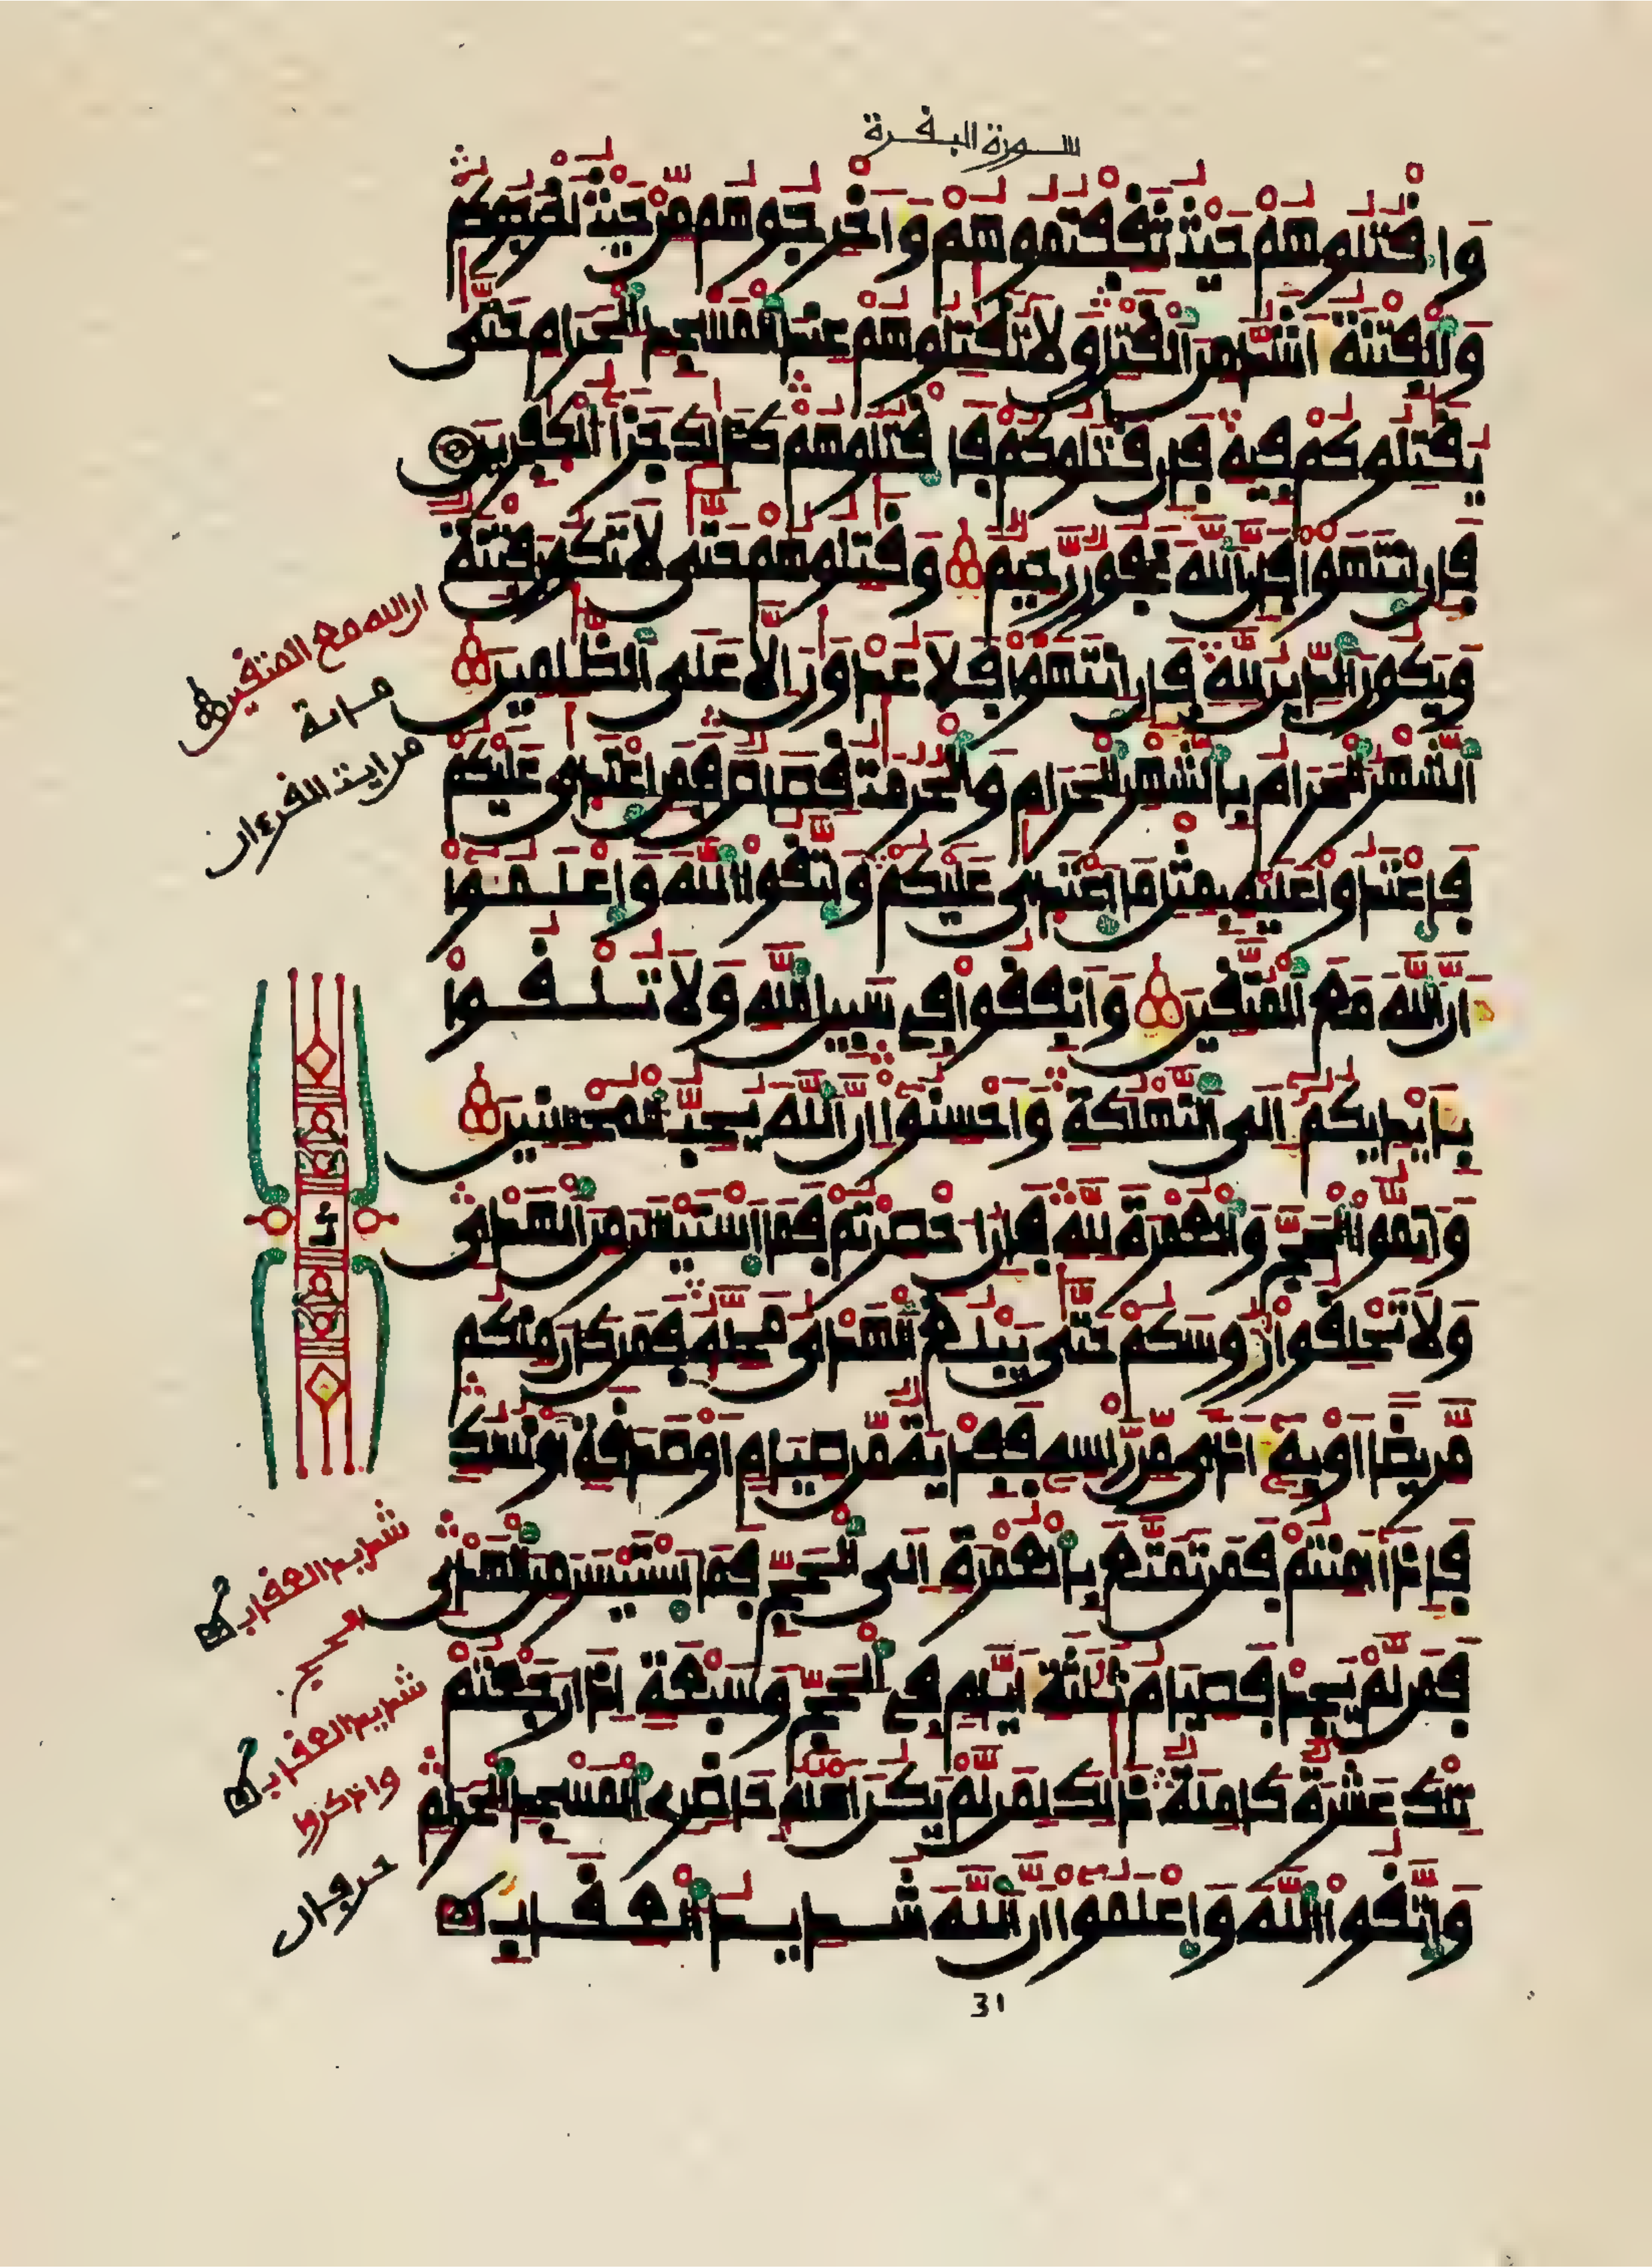 سورة البقرة
وَاقْتُلُوهُمْ حَيْثُ ثَقِفْتُمُوهُمْ وَأَخْرِجُوهُم مِّنْ حَيْثُ أَخْرَجُوكُمْ
وَالْفِتْنَةُ أَشَدُّ مِنَ الْقَتْلِ وَلَا تُقَٰتِلُوهُمْ عِندَ الْمَسْجِدِ الْحَرَامِ حَتَّىٰ
يُقَٰتِلُوكُمْ فِيهِ فَإِن قَٰتَلُوكُمْ فَاقْتُلُوهُمْ كَذَٰلِكَ جَزَآءُ الْكَٰفِرِينَ
فَإِنِ انتَهَوْا فَإِنَّ اللَّهَ غَفُورٌ رَّحِيمٌ وَقَٰتِلُوهُمْ حَتَّىٰ لَا تَكُونَ فِتْنَةٌ
وَيَكُونَ الدِّينُ لِلَّهِ فَإِنِ انتَهَوْا فَلَا عُدْوَٰنَ إِلَّا عَلَى الظَّٰلِمِينَ
الشَّهْرُ الْحَرَامُ بِالشَّهْرِ الْحَرَامِ وَالْحُرُمَٰتُ قِصَاصٌ فَمَنِ اعْتَدَىٰ عَلَيْكُمْ
فَاعْتَدُوا عَلَيْهِ بِمِثْلِ مَا اعْتَدَىٰ عَلَيْكُمْ وَاتَّقُوا اللَّهَ وَاعْلَمُوا
أَنَّ اللَّهَ مَعَ الْمُتَّقِينَ وَأَنفِقُوا فِي سَبِيلِ اللَّهِ وَلَا تُلْقُوا
بِأَيْدِيكُمْ إِلَى التَّهْلُكَةِ وَأَحْسِنُوا إِنَّ اللَّهَ يُحِبُّ الْمُحْسِنِينَ
وَأَتِمُّوا الْحَجَّ وَالْعُمْرَةَ لِلَّهِ فَإِنْ أُحْصِرْتُمْ فَمَا اسْتَيْسَرَ مِنَ الْهَدْيِ
وَلَا تَحْلِقُوا رُءُوسَكُمْ حَتَّىٰ يَبْلُغَ الْهَدْيُ مَحِلَّهُ فَمَن كَانَ مِنكُم
مَّرِيضًا أَوْ بِهِ أَذًى مِّن رَّأْسِهِ فَفِدْيَةٌ مِّن صِيَامٍ أَوْ صَدَقَةٍ أَوْ نُسُكٍ
فَإِذَا أَمِنتُمْ فَمَن تَمَتَّعَ بِالْعُمْرَةِ إِلَى الْحَجِّ فَمَا اسْتَيْسَرَ مِنَ الْهَدْيِ
فَمَن لَّمْ يَجِدْ فَصِيَامُ ثَلَٰثَةِ أَيَّامٍ فِي الْحَجِّ وَسَبْعَةٍ إِذَا رَجَعْتُمْ
تِلْكَ عَشَرَةٌ كَامِلَةٌ ذَٰلِكَ لِمَن لَّمْ يَكُنْ أَهْلُهُ حَاضِرِي الْمَسْجِدِ الْحَرَامِ
وَاتَّقُوا اللَّهَ وَاعْلَمُوا أَنَّ اللَّهَ شَدِيدُ الْعِقَابِ
ان الله مع المتقين
من اية القرءان
شديد العقاب
شديد العقاب
واذكروا
31